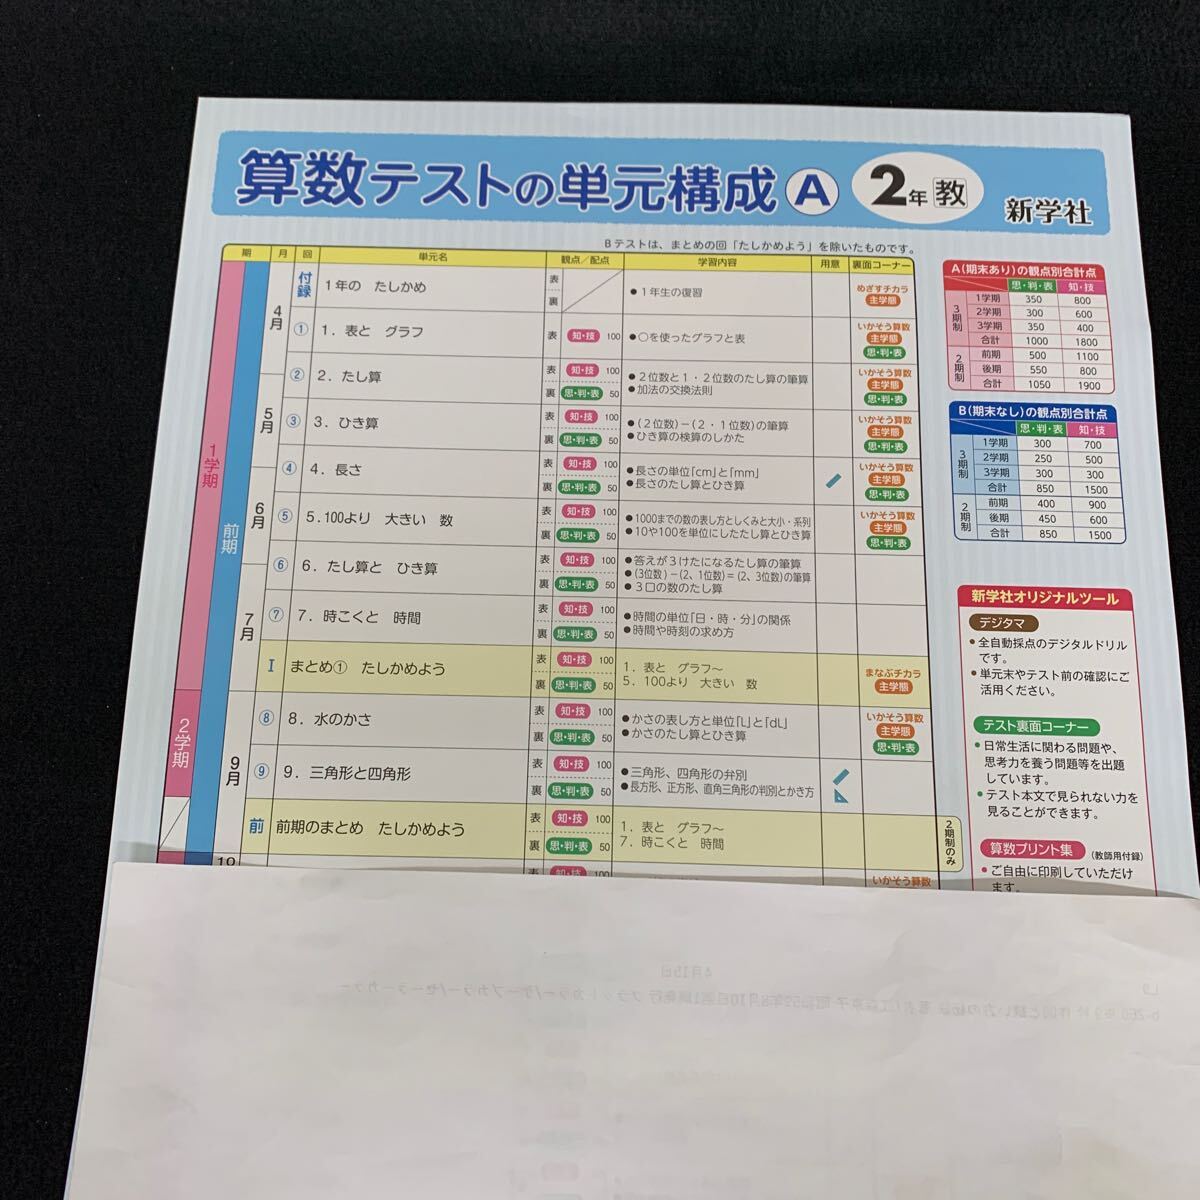 算数テストの単元構成 A 2年 教 新学社
Bテストは、まとめの回「たしかめよう」を除いたものです。
期 月 回 単元名 観点／配点 学習内容 用意 裏面コーナー
1学期
2学期
前期
4月
5月
6月
7月
9月
10
付録 1年の たしかめ 表 裏 ●1年生の復習 めざすチカラ 主学態
① 1．表と グラフ 表 知・技 100 ●○を使ったグラフと表 いかそう算数 主学態 思・判・表
② 2．たし算 表 知・技 100 裏 思・判・表 50
●2位数と1・2位数のたし算の筆算
●加法の交換法則
いかそう算数 主学態 思・判・表
③ 3．ひき算 表 知・技 100 裏 思・判・表 50
●(2位数)−(2・1位数)の筆算
●ひき算の検算のしかた
いかそう算数 主学態 思・判・表
④ 4．長さ 表 知・技 100 裏 思・判・表 50
●長さの単位「cm」と「mm」
●長さのたし算とひき算
いかそう算数 主学態 思・判・表
⑤ 5．100より 大きい 数 表 知・技 100 裏 思・判・表 50
●1000までの数の表し方としくみと大小・系列
●10や100を単位にしたたし算とひき算
いかそう算数 主学態 思・判・表
⑥ 6．たし算と ひき算 表 知・技 100 裏 思・判・表 50
●答えが3けたになるたし算の筆算
●(3位数)−(2、1位数)＝(2、3位数)の筆算
●3口の数のたし算
⑦ 7．時こくと 時間 表 知・技 100 裏 思・判・表 50
●時間の単位「日・時・分」の関係
●時間や時刻の求め方
Ⅰ まとめ① たしかめよう 表 知・技 100 裏 思・判・表 50
1．表と グラフ〜
5．100より 大きい 数
まなぶチカラ 主学態
⑧ 8．水のかさ 表 知・技 100 裏 思・判・表 50
●かさの表し方と単位「L」と「dL」
●かさのたし算とひき算
いかそう算数 主学態 思・判・表
⑨ 9．三角形と四角形 表 知・技 100 裏 思・判・表 50
●三角形、四角形の弁別
●長方形、正方形、直角三角形の判別とかき方
前 前期のまとめ たしかめよう 表 知・技 100 裏 思・判・表 50
1．表と グラフ〜
7．時こくと 時間
2期制のみ
表 知・技 100 いかそう算数
A(期末あり)の観点別合計点
思・判・表 知・技
3期制
1学期 350 800
2学期 300 600
3学期 350 400
合計 1000 1800
2期制
前期 500 1100
後期 550 800
合計 1050 1900
B(期末なし)の観点別合計点
思・判・表 知・技
3期制
1学期 300 700
2学期 250 500
3学期 300 300
合計 850 1500
2期制
前期 400 900
後期 450 600
合計 850 1500
新学社オリジナルツール
デジタマ
●全自動採点のデジタルドリル
です。
●単元末やテスト前の確認にご
活用ください。
テスト裏面コーナー
●日常生活に関わる問題や、
思考力を養う問題等を出題
しています。
●テスト本文で見られない力を
見ることができます。
算数プリント集 (教師用付録)
●ご自由に印刷していただけ
ます。
4月15日